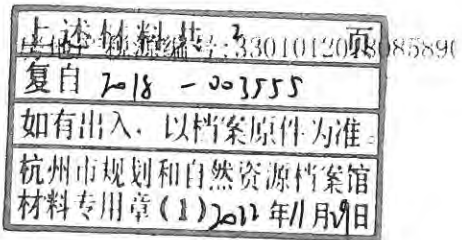 上述材料共 2 页
房地产税源编号:3301012018085890
复自 2018 - 003555
如有出入，以档案原件为准。
杭州市规划和自然资源档案馆
材料专用章(1)2022年11月29日